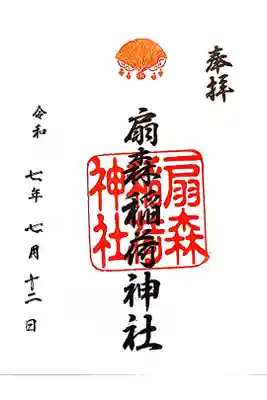 奉拝
扇森稲荷神社
扇森稲荷神社
令和 七年 七月 十二日